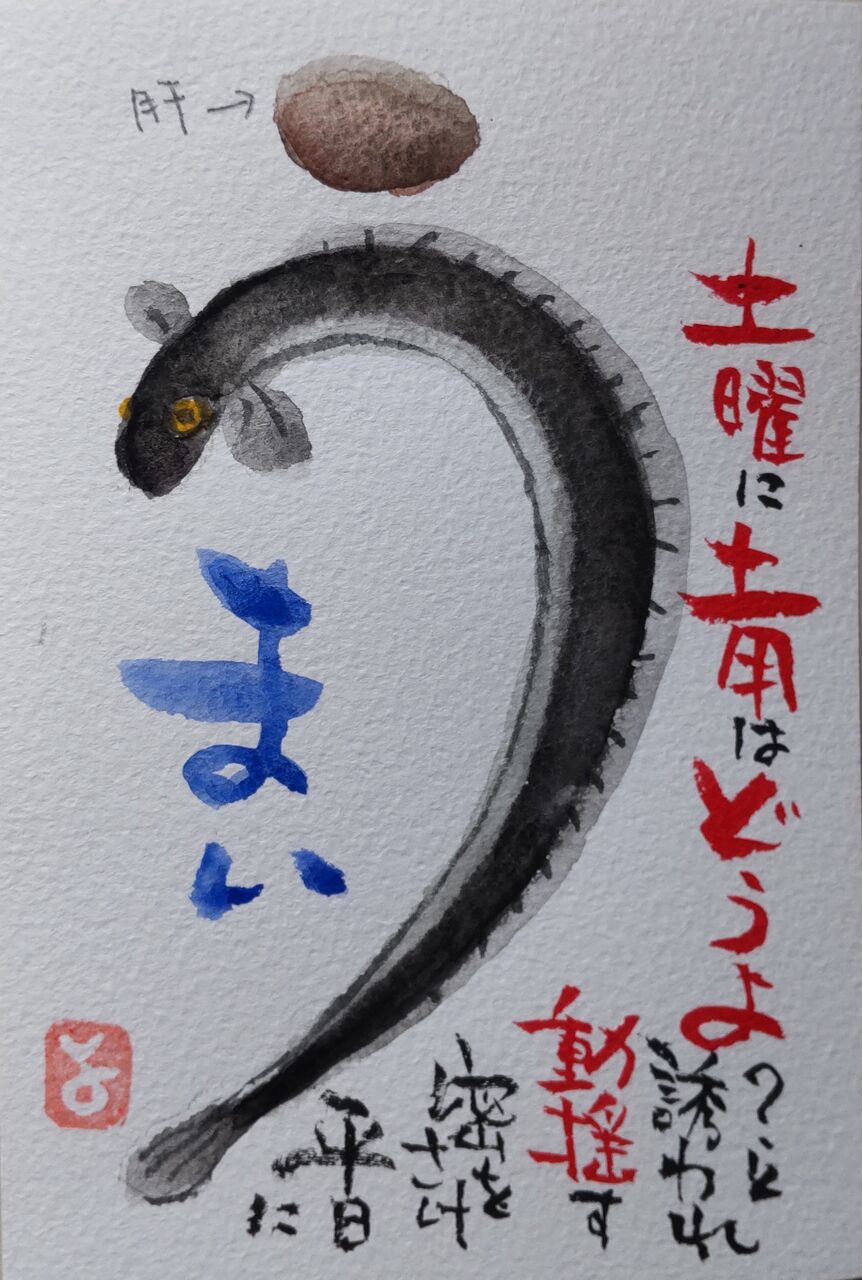 肝→
土曜に土用はどうよ?と
誘われ
動揺す
密をさけ
平日に
まい
と